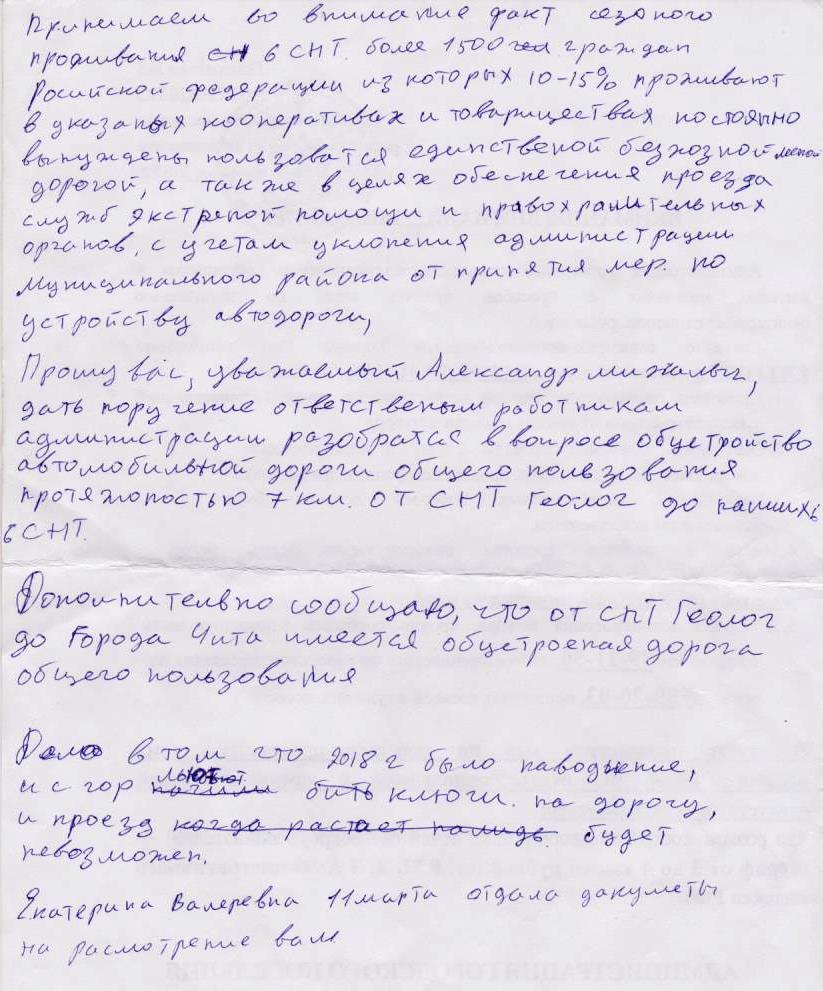 Принимаем во внимание факт сезоного
проживания в СНТ. более 1500 чел. граждан
Росийской федерации из которых 10-15% проживают
в указаных кооперативах и товариществах постоянно
вынуждены пользоватся единственой безхозной лесной
дорогой, а также в целях обеспечения проезда
служб экстреной помощи и правохранительных
органов, с учетам уклонения администрации
муниципального района от принятия мер по
устройству автодороги,
Прошу вас, уважаемый Александр михалыч,
дать поручение ответственым работникам
администрации разобратся в вопросе обустройство
автомобильной дороги общего пользования
протяжоностью 7 км. от СНТ Геолог до наших 6
6 СНТ.
Дополнительно сообщаю, что от СНТ Геолог
до Города Чита имеется обустроеная дорога
общего пользования
Дело в том что 2018 г было наводнение,
и с гор льют ключи. на дорогу,
и проезд когда растает налидь будет
невозможен.
Екатерина Валеревна 11 марта отдала дакуметы
на расмотрение вам